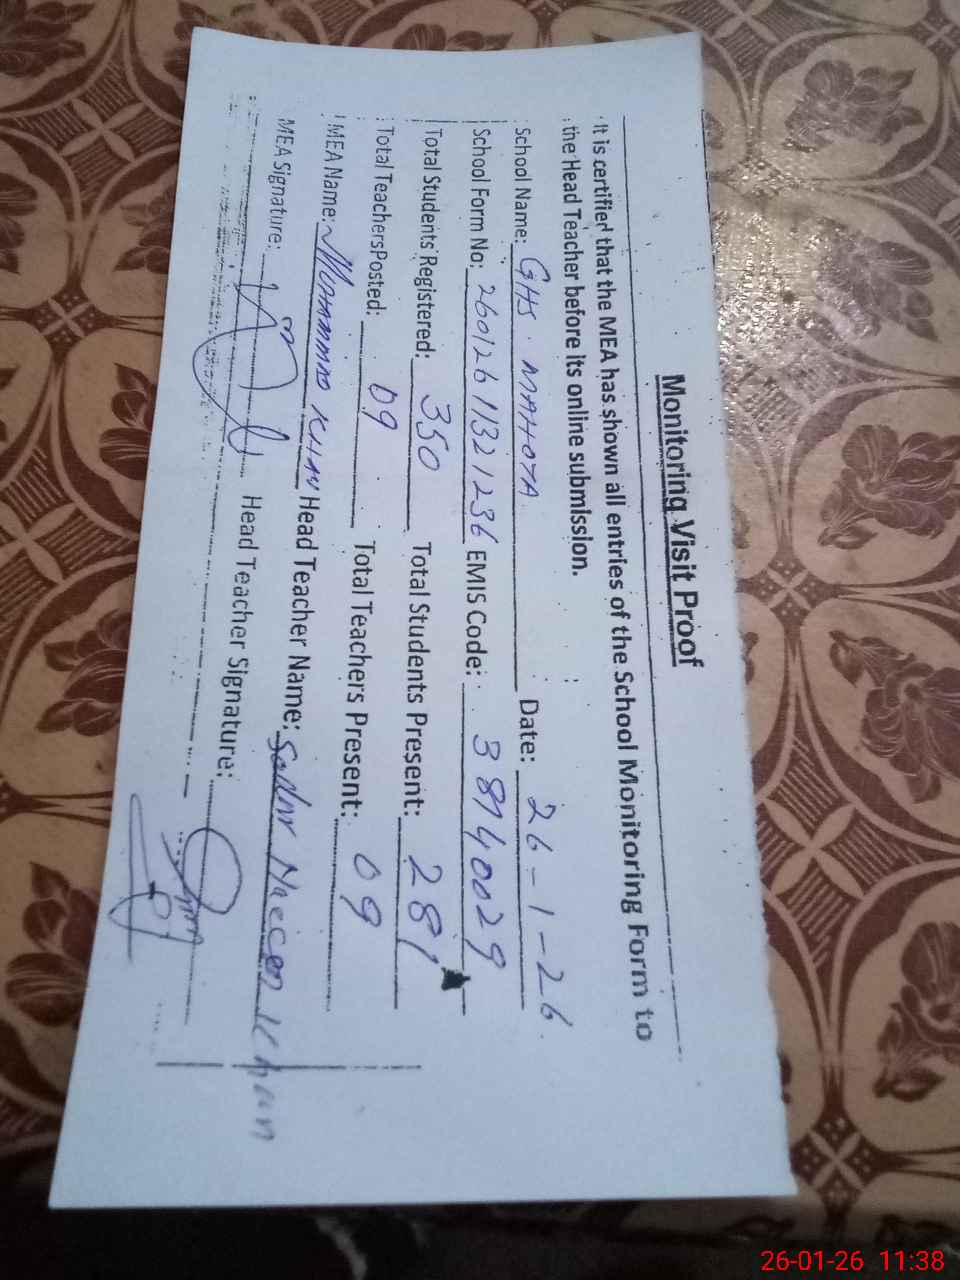 Monitoring Visit Proof
It is certified that the MEA has shown all entries of the School Monitoring Form to
the Head Teacher before its online submission.
School Name: GHS. MAHOTA Date: 26-1-26.
School Form No: 26012611321236 EMIS Code: 38740029
Total Students Registered: 350 Total Students Present: 281
Total Teachers Posted: 09 Total Teachers Present: 09
MEA Name: Mohammad Khan Head Teacher Name: Khan
MEA Signature: Head Teacher Signature:
26-01-26 11:38